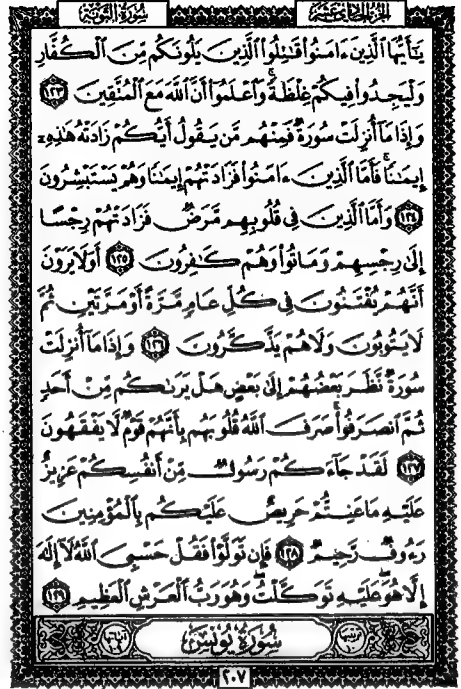 سُورَةُ التَّوْبَةِ
يَٰٓأَيُّهَا ٱلَّذِينَ ءَامَنُوا۟ قَٰتِلُوا۟ ٱلَّذِينَ يَلُونَكُم مِّنَ ٱلْكُفَّارِ
وَلْيَجِدُوا۟ فِيكُمْ غِلْظَةً ۚ وَٱعْلَمُوٓا۟ أَنَّ ٱللَّهَ مَعَ ٱلْمُتَّقِينَ ١٢٣
وَإِذَا مَآ أُنزِلَتْ سُورَةٌ فَمِنْهُم مَّن يَقُولُ أَيُّكُمْ زَادَتْهُ هَٰذِهِۦٓ
إِيمَٰنًا ۚ فَأَمَّا ٱلَّذِينَ ءَامَنُوا۟ فَزَادَتْهُمْ إِيمَٰنًا وَهُمْ يَسْتَبْشِرُونَ
١٢٤ وَأَمَّا ٱلَّذِينَ فِى قُلُوبِهِم مَّرَضٌ فَزَادَتْهُمْ رِجْسًا
إِلَىٰ رِجْسِهِمْ وَمَاتُوا۟ وَهُمْ كَٰفِرُونَ ١٢٥ أَوَلَا يَرَوْنَ
أَنَّهُمْ يُفْتَنُونَ فِى كُلِّ عَامٍ مَّرَّةً أَوْ مَرَّتَيْنِ ثُمَّ
لَا يَتُوبُونَ وَلَا هُمْ يَذَّكَّرُونَ ١٢٦ وَإِذَا مَآ أُنزِلَتْ
سُورَةٌ نَّظَرَ بَعْضُهُمْ إِلَىٰ بَعْضٍ هَلْ يَرَىٰكُم مِّنْ أَحَدٍ
ثُمَّ ٱنصَرَفُوا۟ ۚ صَرَفَ ٱللَّهُ قُلُوبَهُم بِأَنَّهُمْ قَوْمٌ لَّا يَفْقَهُونَ
١٢٧ لَقَدْ جَآءَكُمْ رَسُولٌ مِّنْ أَنفُسِكُمْ عَزِيزٌ
عَلَيْهِ مَا عَنِتُّمْ حَرِيصٌ عَلَيْكُم بِٱلْمُؤْمِنِينَ
رَءُوفٌ رَّحِيمٌ ١٢٨ فَإِن تَوَلَّوْا۟ فَقُلْ حَسْبِىَ ٱللَّهُ لَآ إِلَٰهَ
إِلَّا هُوَ ۖ عَلَيْهِ تَوَكَّلْتُ ۖ وَهُوَ رَبُّ ٱلْعَرْشِ ٱلْعَظِيمِ ١٢٩
سُورَةُ يُونُسَ
٢٠٧